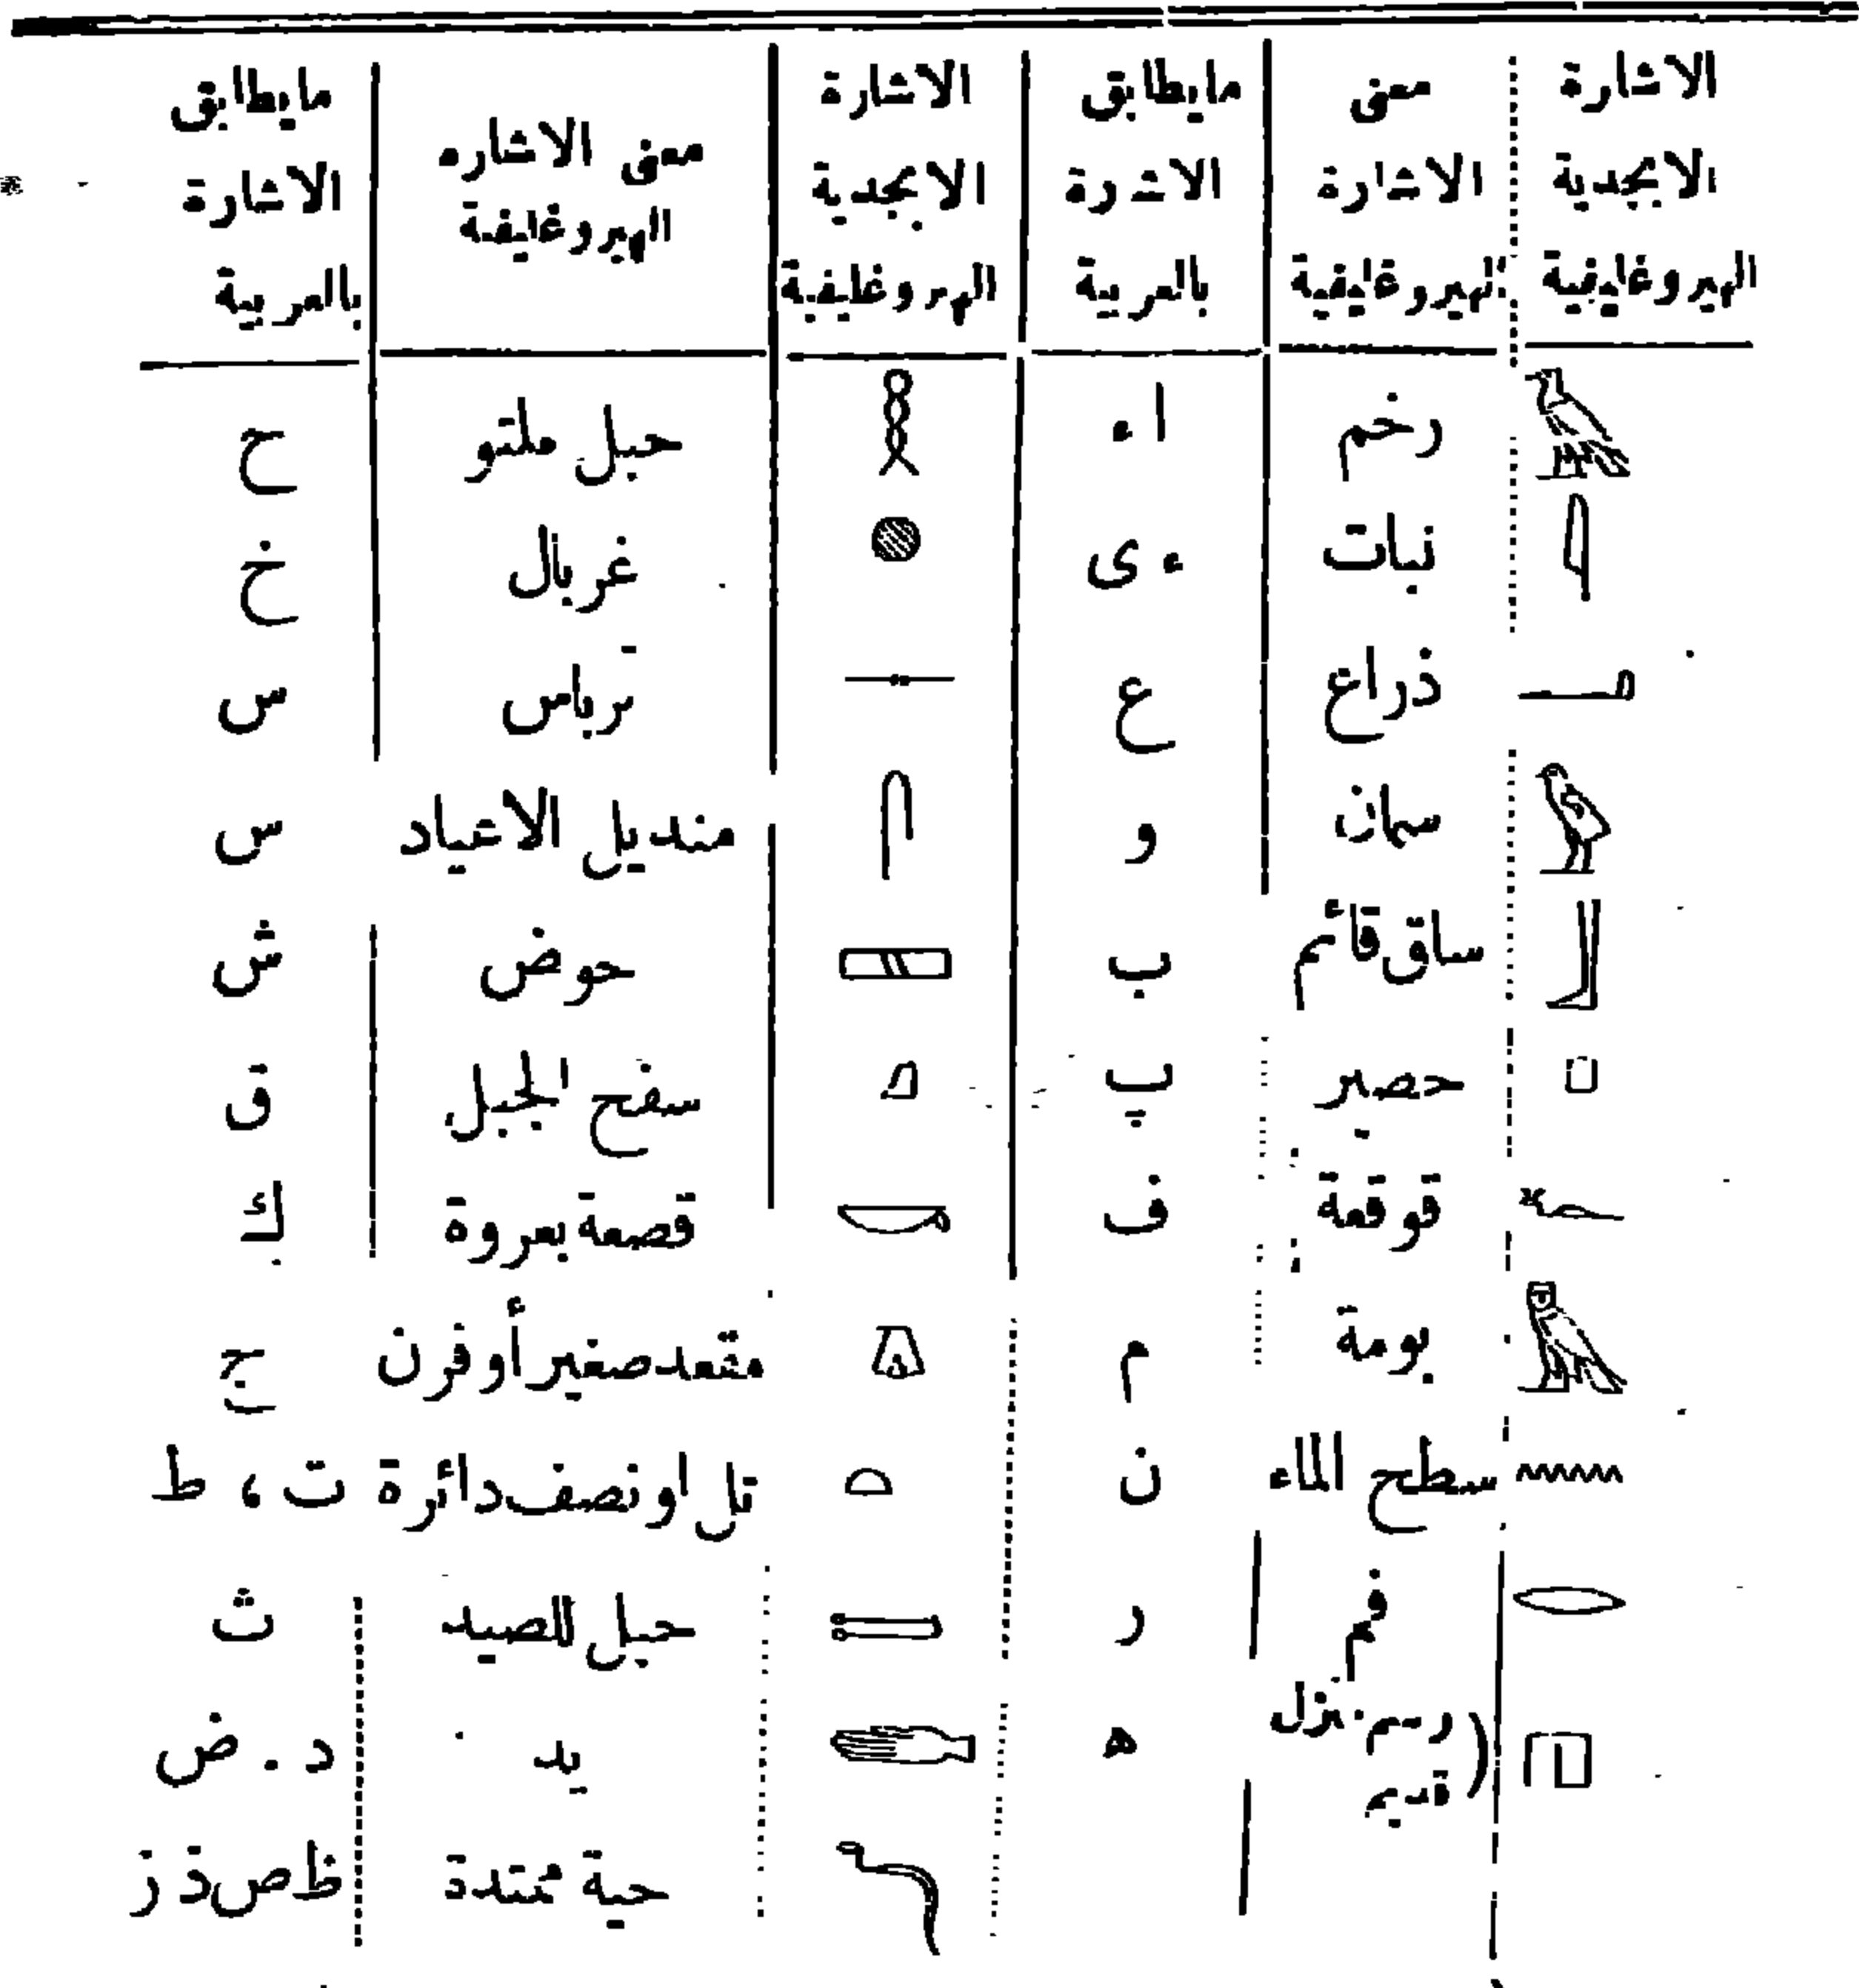 الاشارة الابجدية الهيروغليفية | معنى الاشارة الهيروغليفية | مايطابق الاشرة بالعربية | الاشارة الابجدية الهروظليفية | معنى الاشاره الهيروغليفية | مايطابق الاشارة بالعربية
رخم | ا ء | حبل ملتو | ح
نبات | ء ى | غربال | خ
ذراع | ع | ترباس | س
سمان | و | منديل الاشياد | س
ساق قائم | ب | حوض | ش
حصير | پ | سفح الجبل | ق
قوقعة | ف | قصعة بعروة | ك
بومة | م | مثعد صغير أو فرن | ج
سطح الماء | ن | تل او نصف دائرة | ت ، ط
فم | ر | حبل للصيد | ث
قديم) | ه | يد | د . ض
حية ممتدة | ظ ص ذ ز